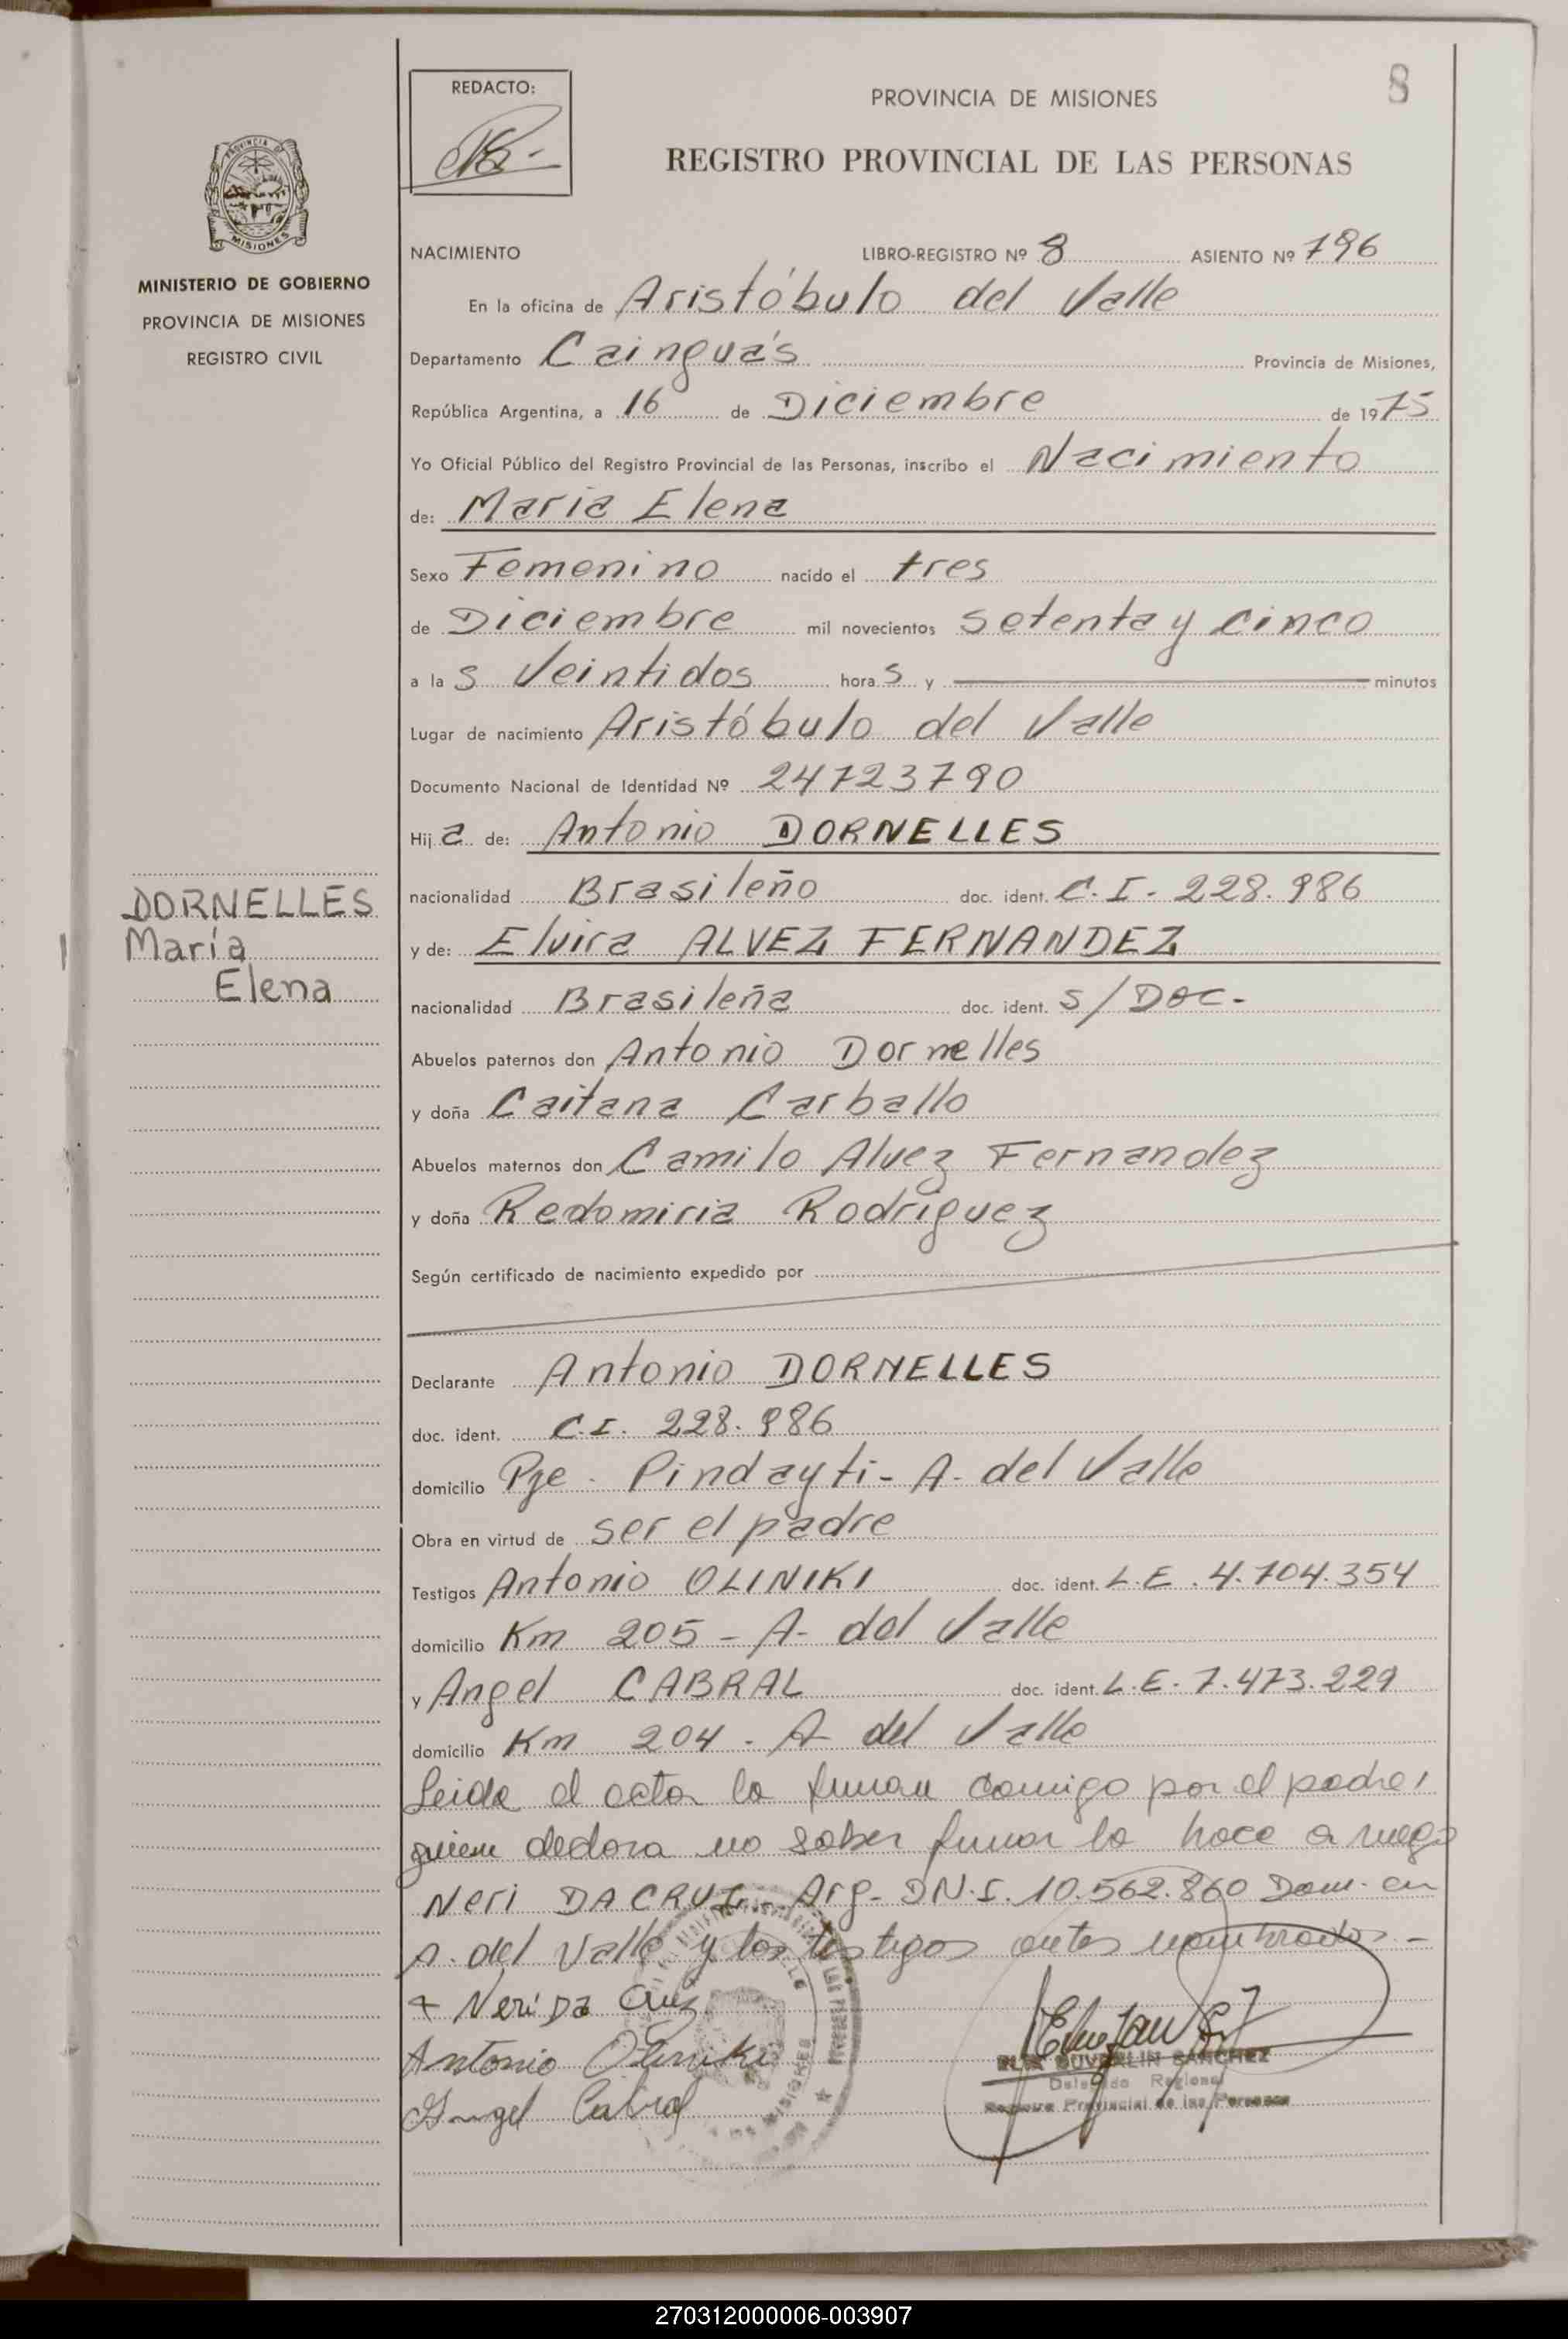 8
REDACTO:
PROVINCIA DE MISIONES
REGISTRO PROVINCIAL DE LAS PERSONAS
PROVINCIA DE
MISIONES
MINISTERIO DE GOBIERNO
PROVINCIA DE MISIONES
REGISTRO CIVIL
NACIMIENTO LIBRO-REGISTRO Nº 8 ASIENTO Nº 796
En la oficina de Aristóbulo del Valle
Departamento Cainguás Provincia de Misiones,
República Argentina, a 16 de Diciembre de 1975
Yo Oficial Público del Registro Provincial de las Personas, inscribo el Nacimiento
de: Maria Elena
Sexo Femenino nacido el tres
de Diciembre mil novecientos setenta y cinco
a la s Veintidos hora s y minutos
Lugar de nacimiento Aristóbulo del Valle
Documento Nacional de Identidad Nº 24723790
Hij a de: Antonio DORNELLES
nacionalidad Brasileño doc. ident. C.I. 228.986
DORNELLES
María
Elena
y de: Elvira ALVEZ FERNANDEZ
nacionalidad Brasileña doc. ident. S/DOC-
Abuelos paternos don Antonio Dornelles
y doña Caitana Carballo
Abuelos maternos don Camilo Alvez Fernandez
y doña Redomiria Rodríguez
Según certificado de nacimiento expedido por
Declarante Antonio DORNELLES
doc. ident. C.I. 228.986
domicilio Pje. Pindayti - A. del Valle
Obra en virtud de ser el padre
Testigos Antonio OLINIKI doc. ident. L.E. 4.704.354
domicilio Km 205 - A. del Valle
y Angel CABRAL doc. ident. L.E. 7.473.229
domicilio Km 204 - A del Valle
Leida el acta la firman comigo por el padre,
quien declara no saber firmar lo hace a ruego
Neri DA CRUZ - Arg - DN.I. 10.562.860 Dom. en
A. del Valle y los testigos antes nombrados -
+ Neri Da Cruz
Antonio Oliniki
Angel Cabral
SANCHEZ
Delegado Regional
Registro Provincial de las Personas
MISIONES
270312000006-003907